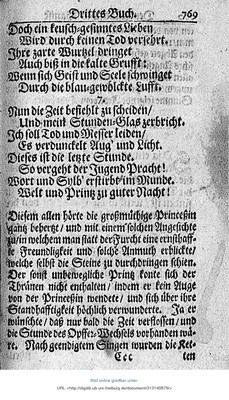 Drittes Buch. 769
Doch ein keusch-gesinntes Lieben
Wird durch keinen Tod versehrt.
Ihre zarte Wurtzel dringet
Auch biß in die kalte Grufft:
Wenn sich Geist und Seele schwinget
Durch die blau-gewölckte Lufft.
7.
Nun die Zeit heist zu scheiden/
Und mein Stunden-Glas zerbricht.
Ich soll Tod und Messer leiden/
Es verdunckelt Aug' und Licht.
Dieses ist die letzte Stunde.
So vergeht der Jugend Pracht!
Wort und Sylb' erstirbt im Munde.
Welt und Printz zu guter Nacht!
Diesem allen hörte die großmüthige Princeßin
gantz behertzt/ und mit einem solchen Angesichte
zu/ in welchem man statt der Furcht eine ernsthaff-
te Freundligkeit und solche Anmuth erblickte/
welche selbst die Steine zu durchdringen schien.
Der sonst unbewegliche Printz konte sich der
Thränen nicht enthalten/ indem er kein Auge
von der Princeßin wendete/ und sich über ihre
Standhafftigkeit höchlich verwunderte. Ja er
wünschte/ daß nur bald die Zeit verflossen/ und
die Stunde des Opffer-Wechsels vorhanden wä-
re. Nach geendigtem Singen wurden die Ket-
Ccc ten
Bild online greifbar unter: